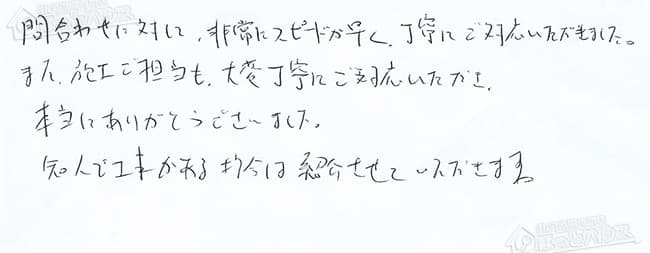 問合わせに対して、非常にスピードが早く、丁寧にご対応いただきました。
また、施工ご担当も、大変丁寧にご対応いただき、
本当にありがとうございました。
知人で工事がある場合は紹介させていただきます。